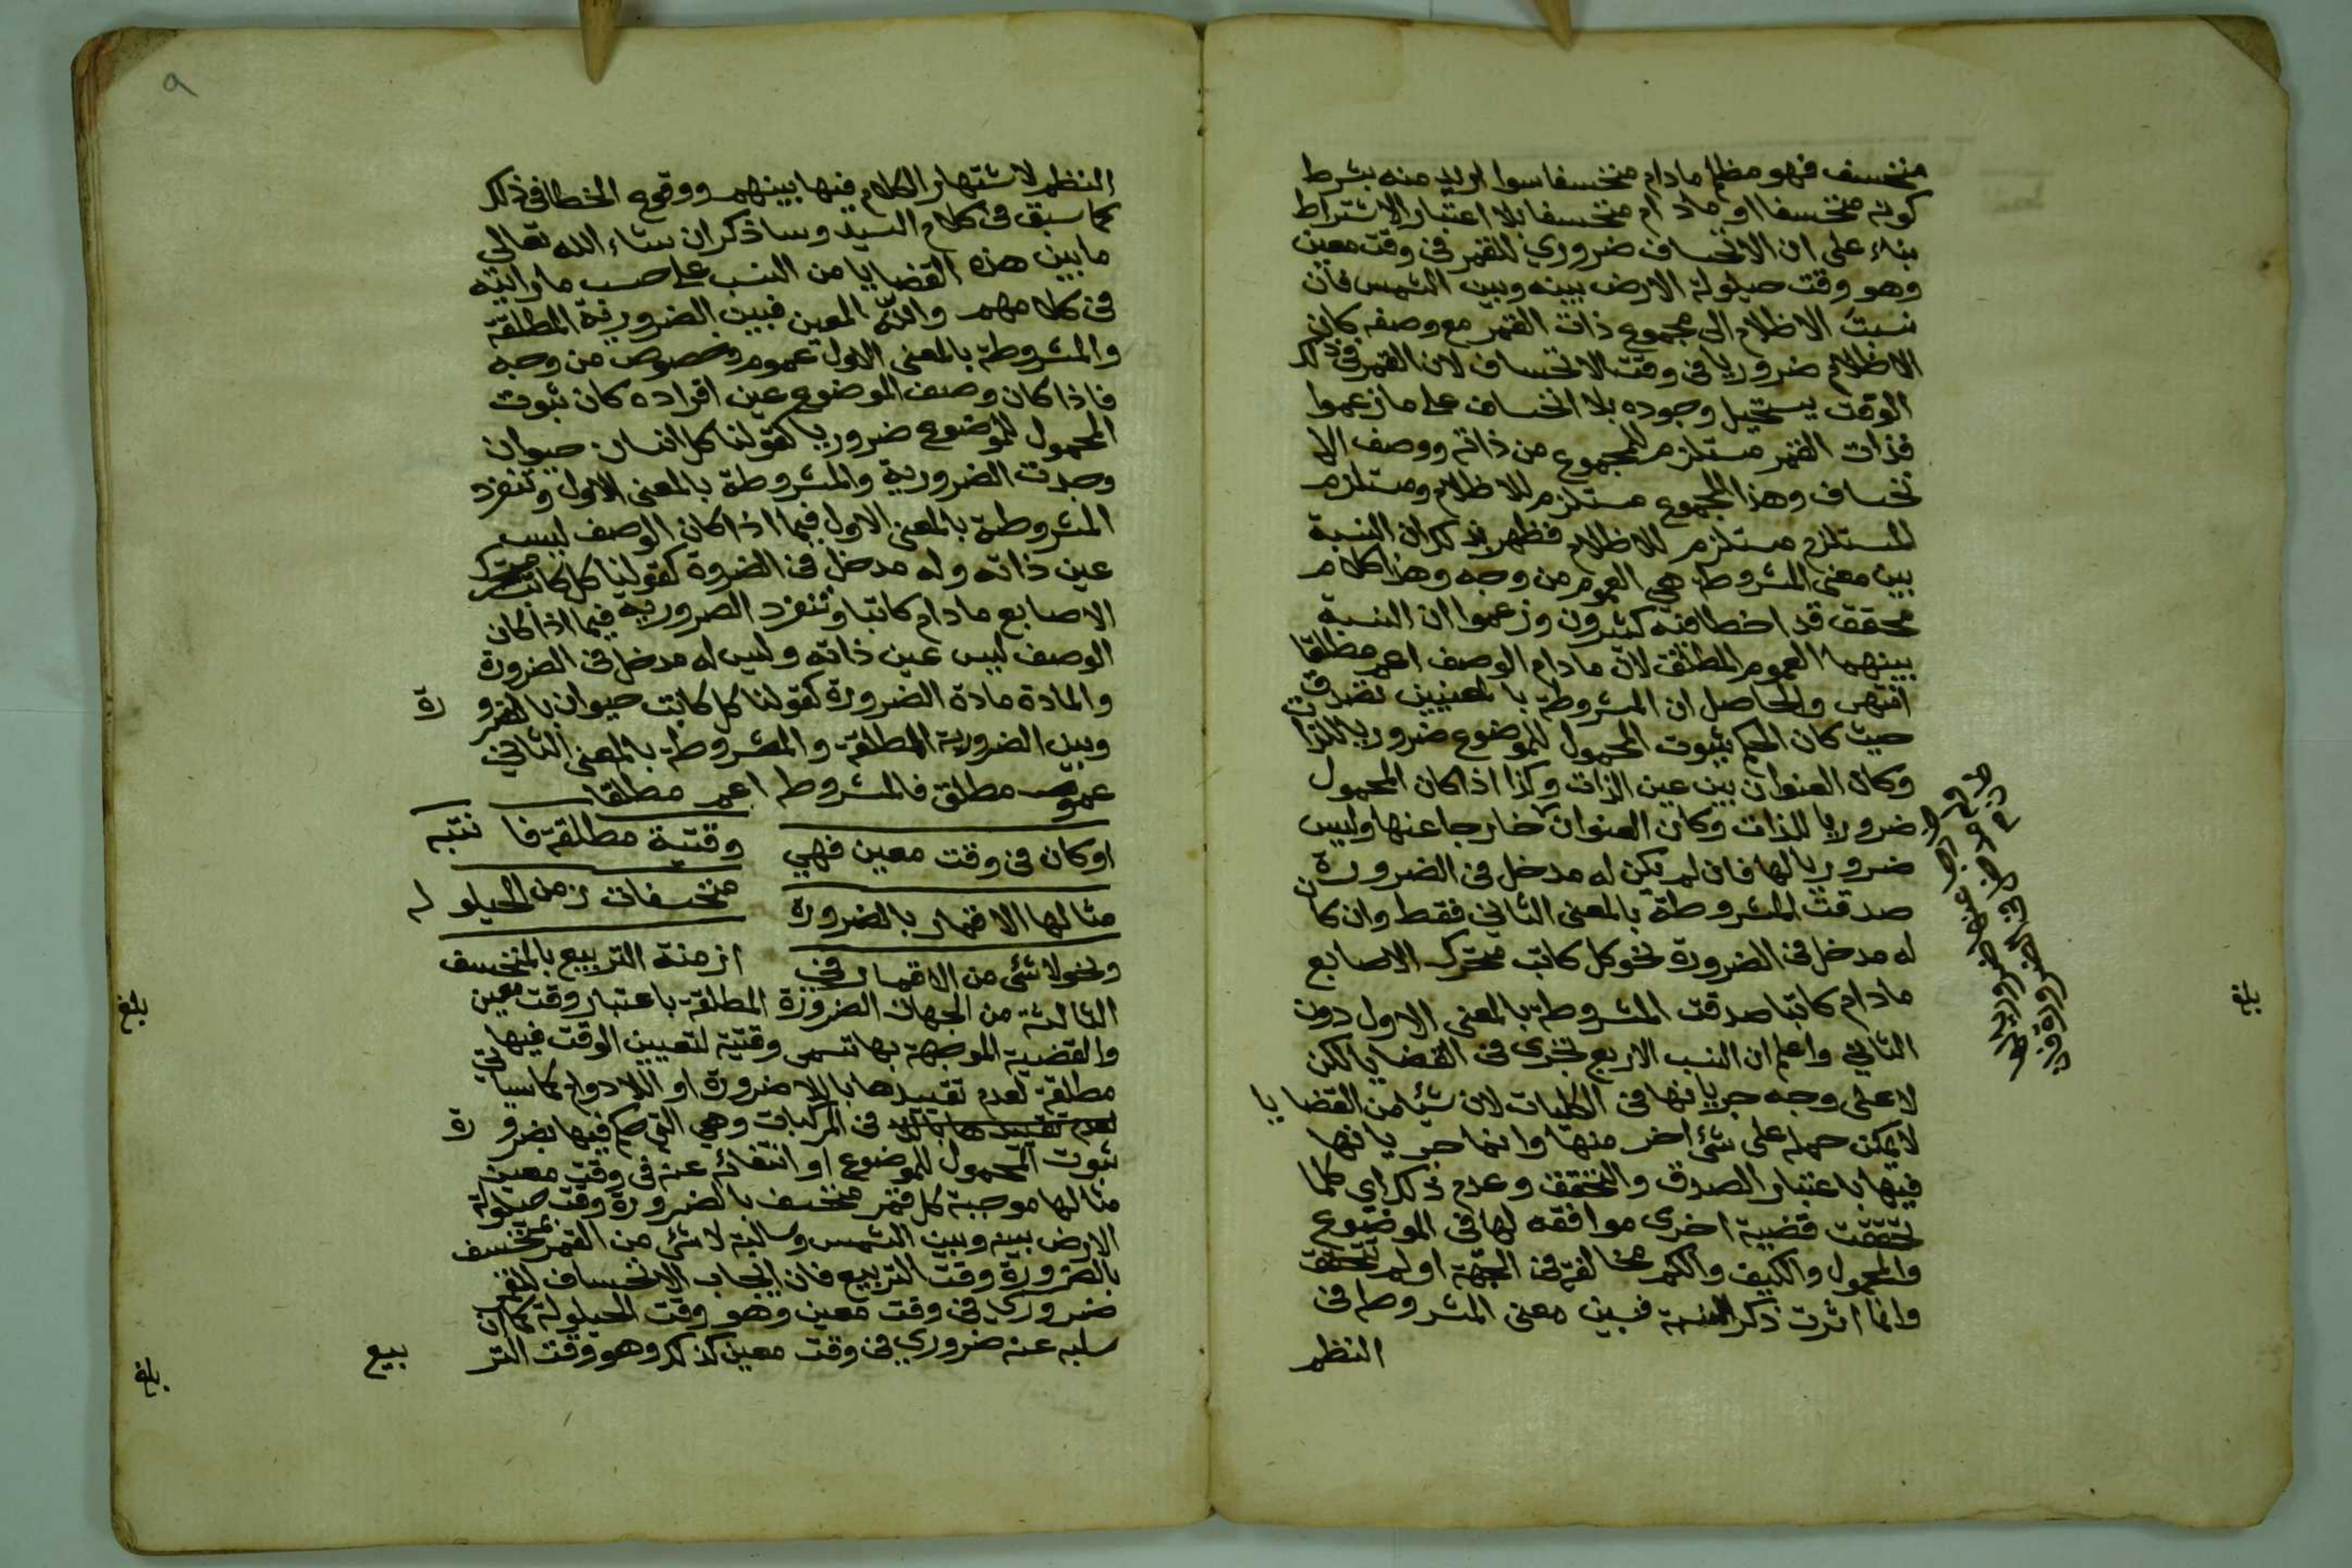 منخسف فهو مظلم مادام منخسفا سوا اريد منه بشرط
كونه منخسفا او مادام منخسفا بلا اعتبار الاشتراط
بناء على ان الانخساف ضروري للقمر في وقت معين
وهو وقت حيلولة الارض بينه وبين الشمس فان
نسبت الاظلام الى مجموع ذات القمر مع وصفه كان
الاظلام ضروريا في وقت الانخساف لان القمر في ذلك
الوقت يستحيل وجوده بلا انخساف على ما زعموا
فذات القمر مستلزم للمجموع من ذاته ووصف الا
نخساف وهذا المجموع مستلزم للاظلام ومستلزم
المستلزم مستلزم للاظلام فظهر بذلك ان النسبة
بين معنى المشروطة هي العموم من وجه وهذا كلام
محقق قد اخطا فيه كثيرون وزعموا ان النسبة
بينهما العموم المطلق لان مادام الوصف اعم مطلقا
انتهى والحاصل ان المشروطة بالمعنيين تصدق
حيث كان الحكم بثبوت المحمول للموضوع ضروريا للذات
وكان العنوان بين عين الذات وكذا اذا كان المحمول
ضروريا للذات وكان العنوان خارجا عنها وليس
ضروريا لها فان لم يكن له مدخل في الضرورة
صدقت المشروطة بالمعنى الثاني فقط وان كان
له مدخل في الضرورة نحو كل كاتب متحرك الاصابع
مادام كاتبا صدقت المشروطة بالمعنى الاول دون
الثاني واعلم ان النسب الاربع تجري في القضايا لكن
لا على وجه جريانها في الكليات لان شيئا من القضايا
لا يمكن حمله على شئ اخر منها وانما جريانها
فيها باعتبار الصدق والتحقق وعدم ذلك اي كلما
تحققت قضية اخرى موافقه لها في الموضوع
والمحمول والكيف والكم مخالفة في الجهة او لم تتحقق
وانما اثرت ذكر النسبة فبين معنى المشروطه في
النظم
بلغ
النظم لاشتهار الكلام فيها بينهم ووقوع الخطا في ذلك
كما سبق في كلام السيد وساذكر ان شاء الله تعالى
ما بين هذه القضايا من النسب على حسب ما رايته
في كلامهم والله المعين فبين الضرورية المطلقة
والمشروطة بالمعنى الاول عموم وخصوص من وجه
فاذا كان وصف الموضوع عين افراده كان ثبوت
المحمول للموضوع ضروريا كقولنا كل انسان حيوان
وجدت الضرورية والمشروطة بالمعنى الاول وتنفرد
المشروطة بالمعنى الاول فيما اذا كان الوصف ليس
عين ذاته وله مدخل في الضروة كقولنا كل كاتب متحرك
الاصابع مادام كاتبا وتنفرد الضرورية فيما اذا كان
الوصف ليس عين ذاته وليس له مدخل في الضرورة
والمادة مادة الضرورة كقولنا كل كاتب حيوان بالضرورة
وبين الضرورية المطلقة والمشروطة بالمعنى الثاني
عموم مطلق فالمشروطه اعم مطلقا
او كان في وقت معين فهي وقتية مطلقة فانتبه
مثالها الاقمار بالضرورة منخسفات زمن الحيلوله
ونحو لا شئ من الاقمار في ازمنة التربيع بالمنخسف
الثالثة من الجهات الضرورة المطلقة باعتبار وقت معين
والقضية الموجهة بها تسمى وقتية لتعيين الوقت فيها
مطلقة لعدم تقييدها باللاضرورة او اللادوام كما سياتي
في المركبات وهي التي حكم فيها بضرورة
ثبوت المحمول للموضوع او انتفائه عنه في وقت معين
مثالها موجبة كل قمر منخسف بالضرورة وقت حيلولة
الارض بينه وبين الشمس وسالبة لا شئ من القمر بمنخسف
بالضرورة وقت التربيع فان ايجاب الانخساف للقمر
ضروري في وقت معين وهو وقت الحيلولة كما ان
سلبه عنه ضروري في وقت معين كذلك وهو وقت التربيع
بلغ
بلغ
٩